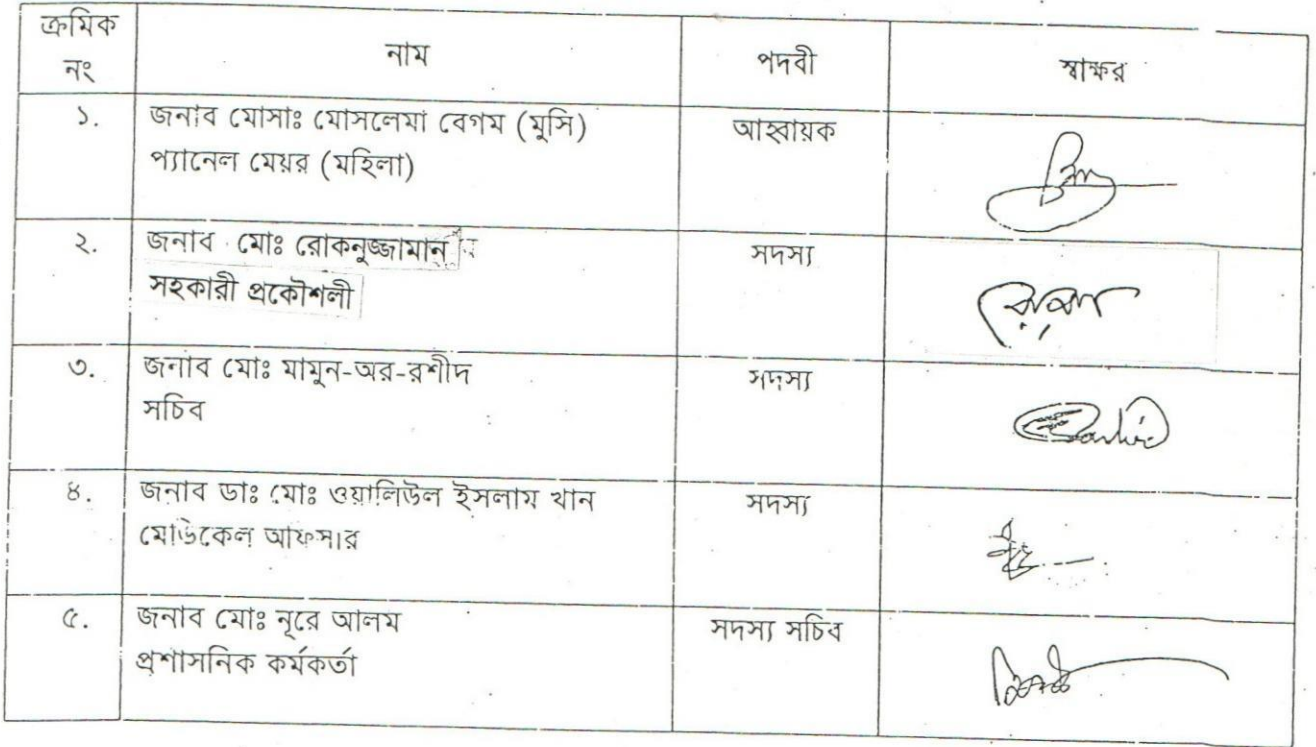 ক্রমিক নং
নাম
পদবী
স্বাক্ষর
১.
জনাব মোসাঃ মোসলেমা বেগম (মুসি)
প্যানেল মেয়র (মহিলা)
আহ্বায়ক
২.
জনাব মোঃ রোকনুজ্জামান
সহকারী প্রকৌশলী
সদস্য
৩.
জনাব মোঃ মামুন-অর-রশীদ
সচিব
সদস্য
৪.
জনাব ডাঃ মোঃ ওয়ালিউল ইসলাম খান
মেডিকেল আফিসার
সদস্য
৫.
জনাব মোঃ নূরে আলম
প্রশাসনিক কর্মকর্তা
সদস্য সচিব